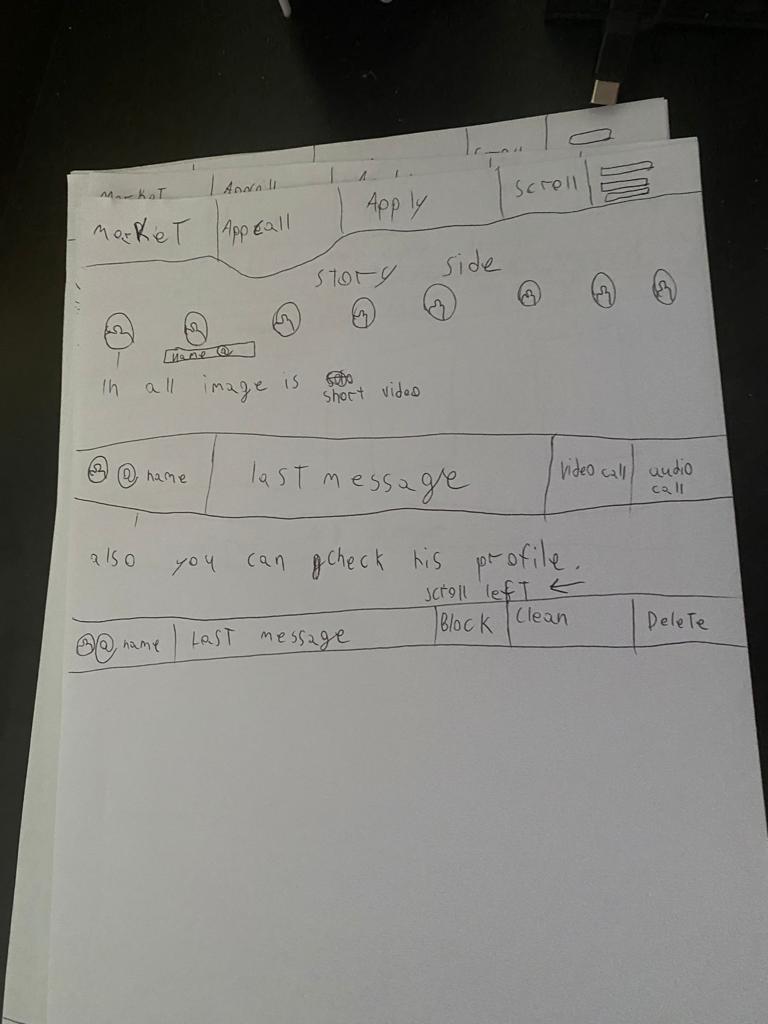 Market Appcall Apply scroll
story side
name @
In all image is short video
@ name last message video call audio call
also you can check his profile.
scroll left ←
@ name Last message Block Clean Delete